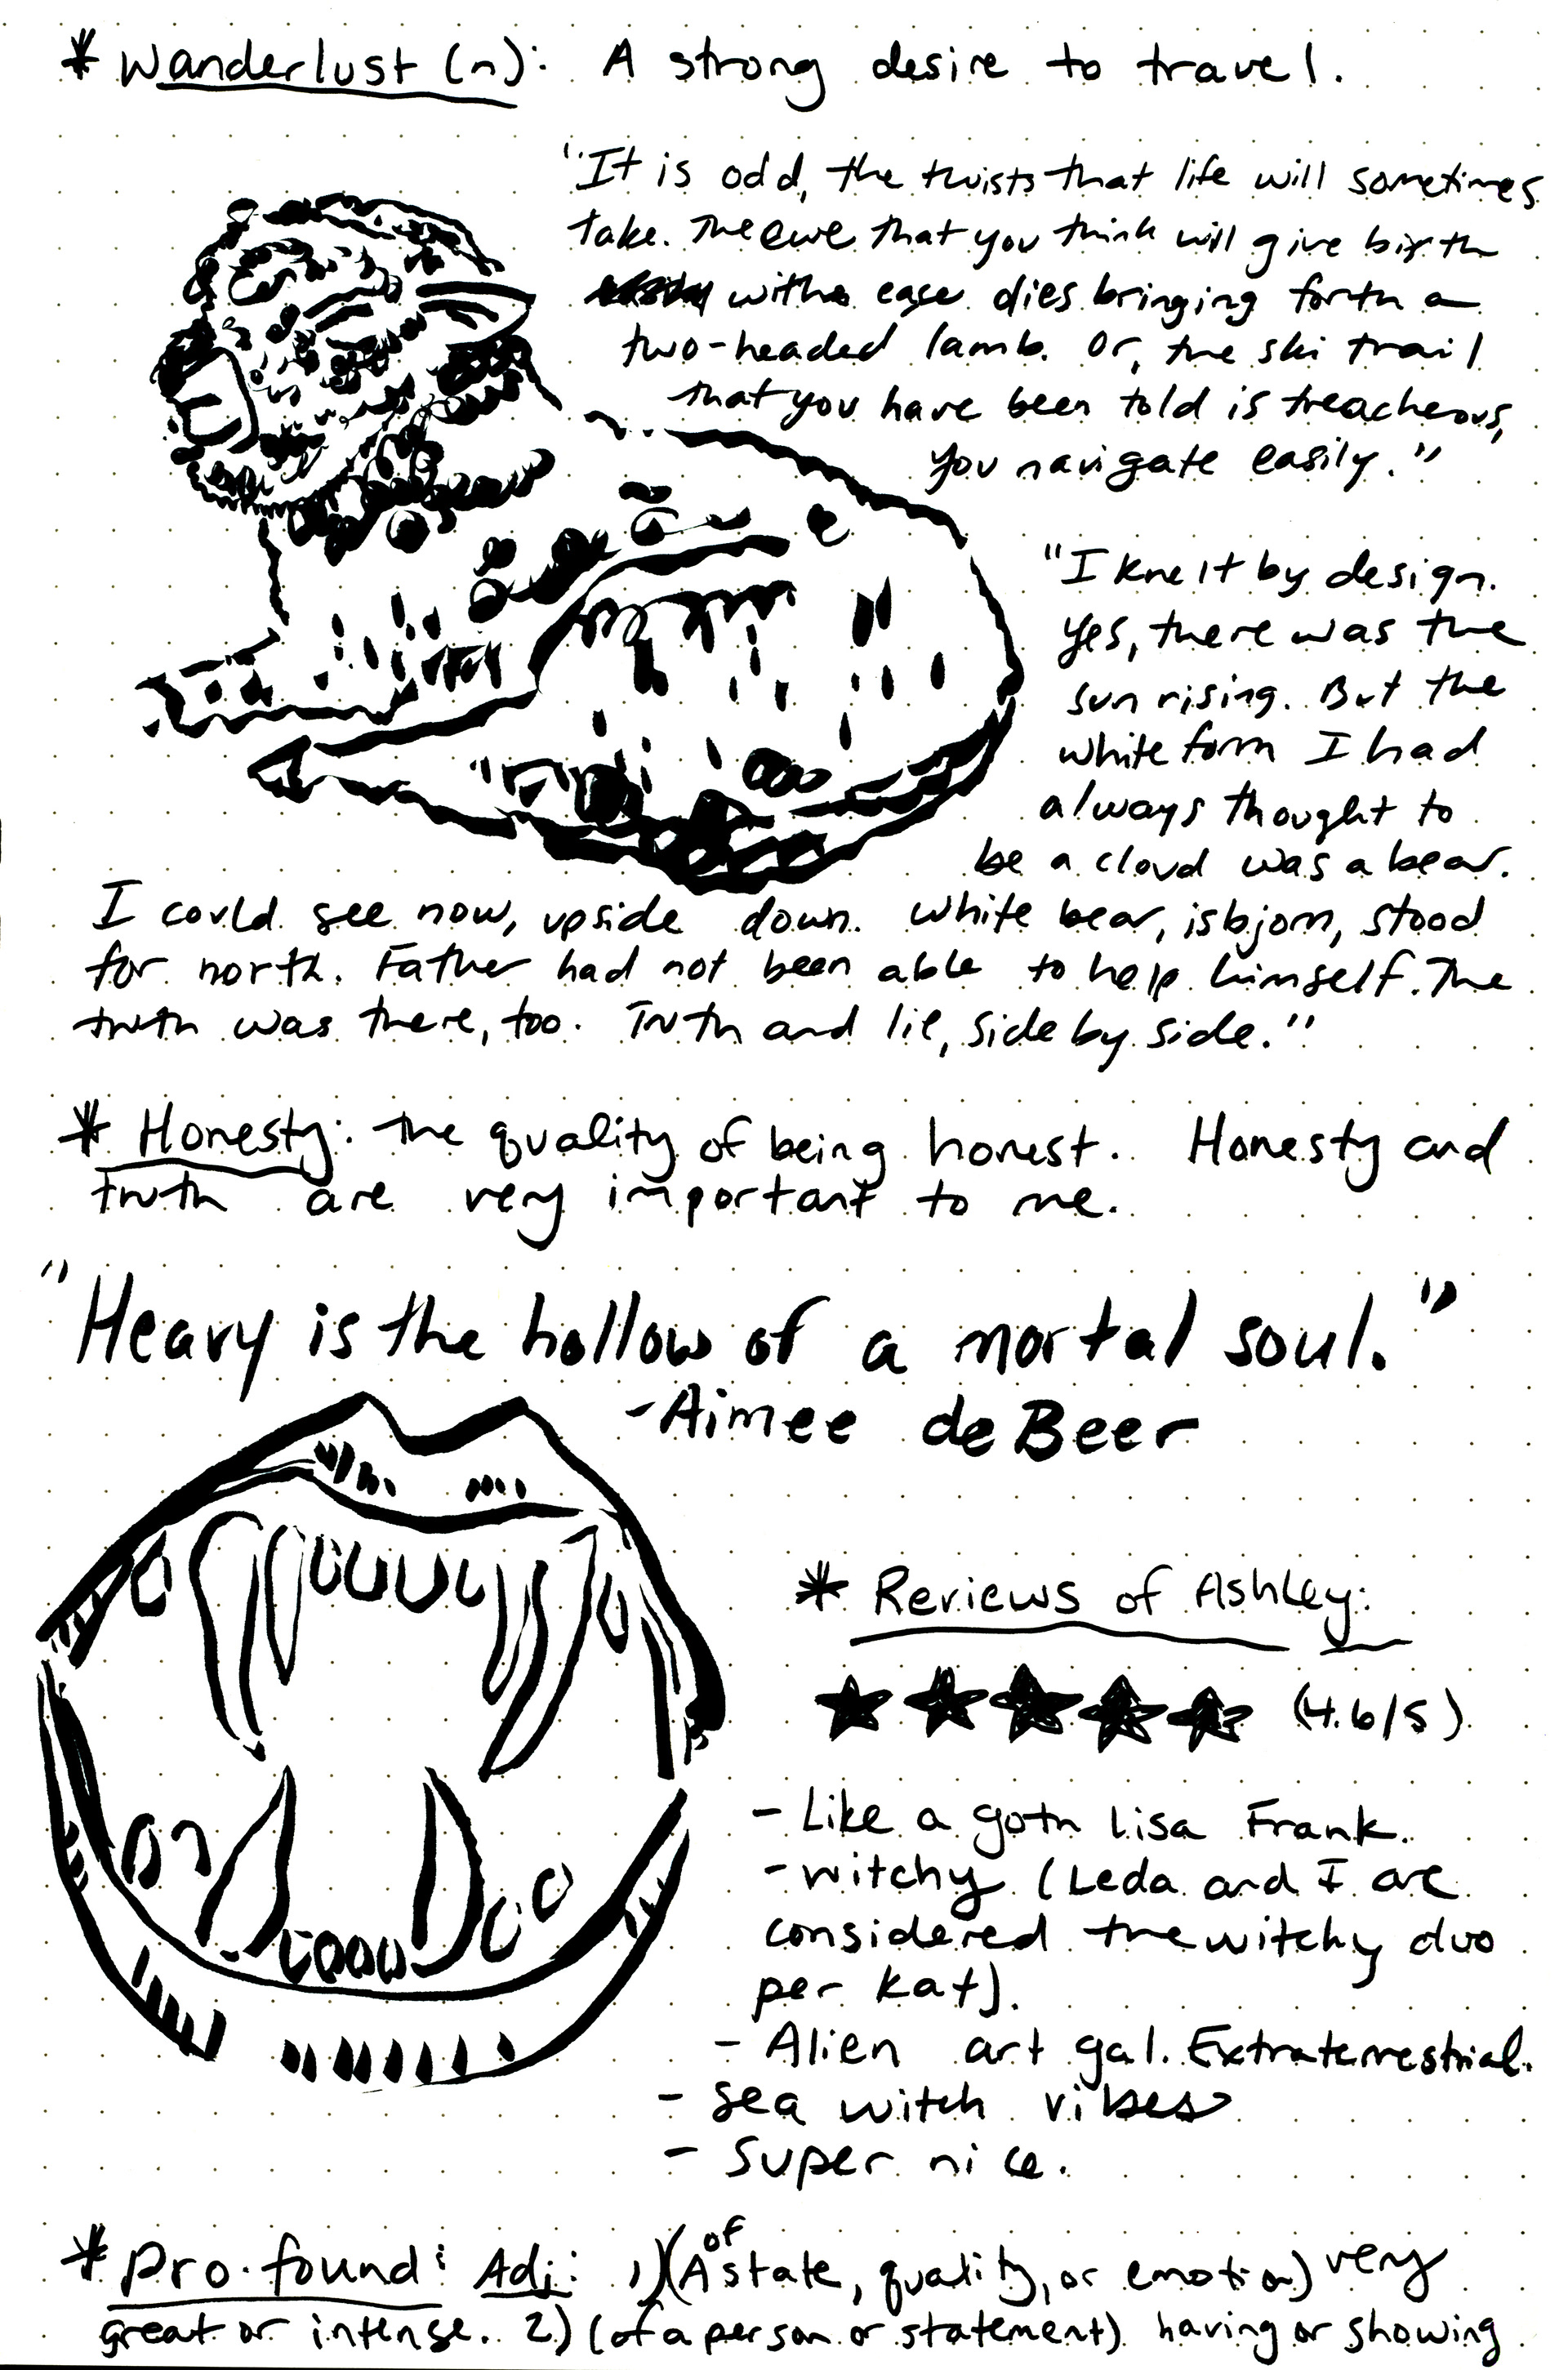 * Wanderlust (n): A strong desire to travel.
"It is odd, the twists that life will sometimes
take. The ewe that you think will give birth
with ease dies bringing forth a
two-headed lamb. Or, the ski trail
that you have been told is treacherous,
you navigate easily."
"I knelt by design.
Yes, there was the
sun rising. But the
white form I had
always thought to
be a cloud was a bear.
I could see now, upside down. White bear, isbjorn, stood
for north. Father had not been able to help himself. The
truth was there, too. Truth and lie, side by side."
* Honesty: the quality of being honest. Honesty and
truth are very important to me.
"Heavy is the hollow of a mortal soul."
-Aimee de Beer
* Reviews of Ashley:
★★★★★ (4.6/5)
- Like a goth Lisa Frank.
- witchy (Leda and I are
considered the witchy duo
per Kat).
- Alien art gal. Extraterrestrial.
- sea witch vibes
- Super nice.
* Pro·found: Adj: 1) (Of A state, quality, or emotion) very
great or intense. 2) (of a person or statement) having or showing